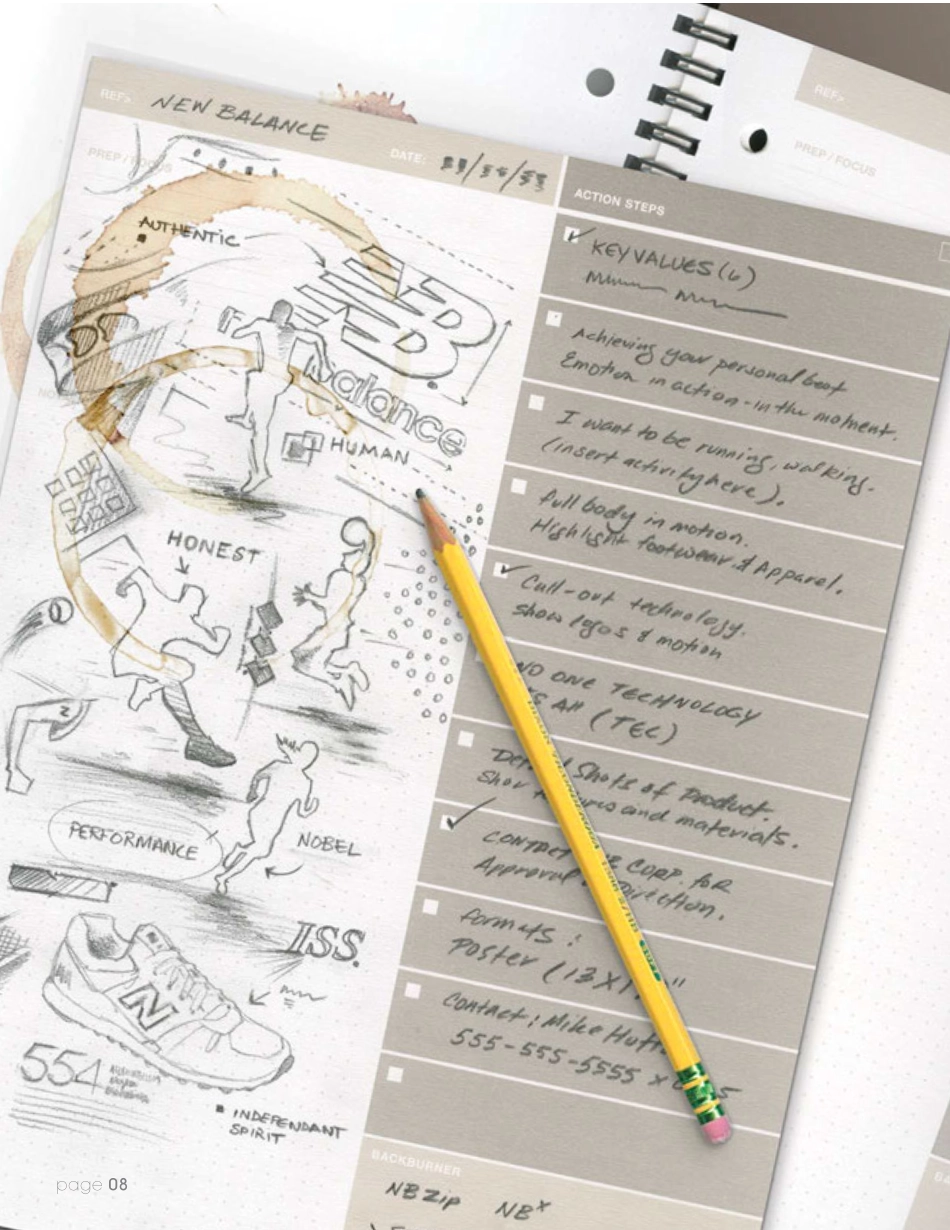 REF>.
NEW BALANCE
DATE:
PREP / FOCUS
AUTHENTIC
NB
balance
HUMAN
HONEST
PERFORMANCE
NOBEL
I.S.S.
N
554
INDEPENDANT
SPIRIT
ACTION STEPS
KEY VALUES (6)
Achieving your personal best
Emotion in action - in the moment.
I want to be running, walking.
(insert activity here).
full body in motion.
Highlight footwear & Apparel.
Call-out technology.
show logos & motion
NO ONE TECHNOLOGY
All (TEC)
Shots of Product.
and materials.
CONTACT CORP. for
Approval Direction.
formats:
Poster (13X
Contact: Mike
555-555-5555 X
BACKBURNER
NBZip NBx
REF>.
PREP / FOCUS
page 08